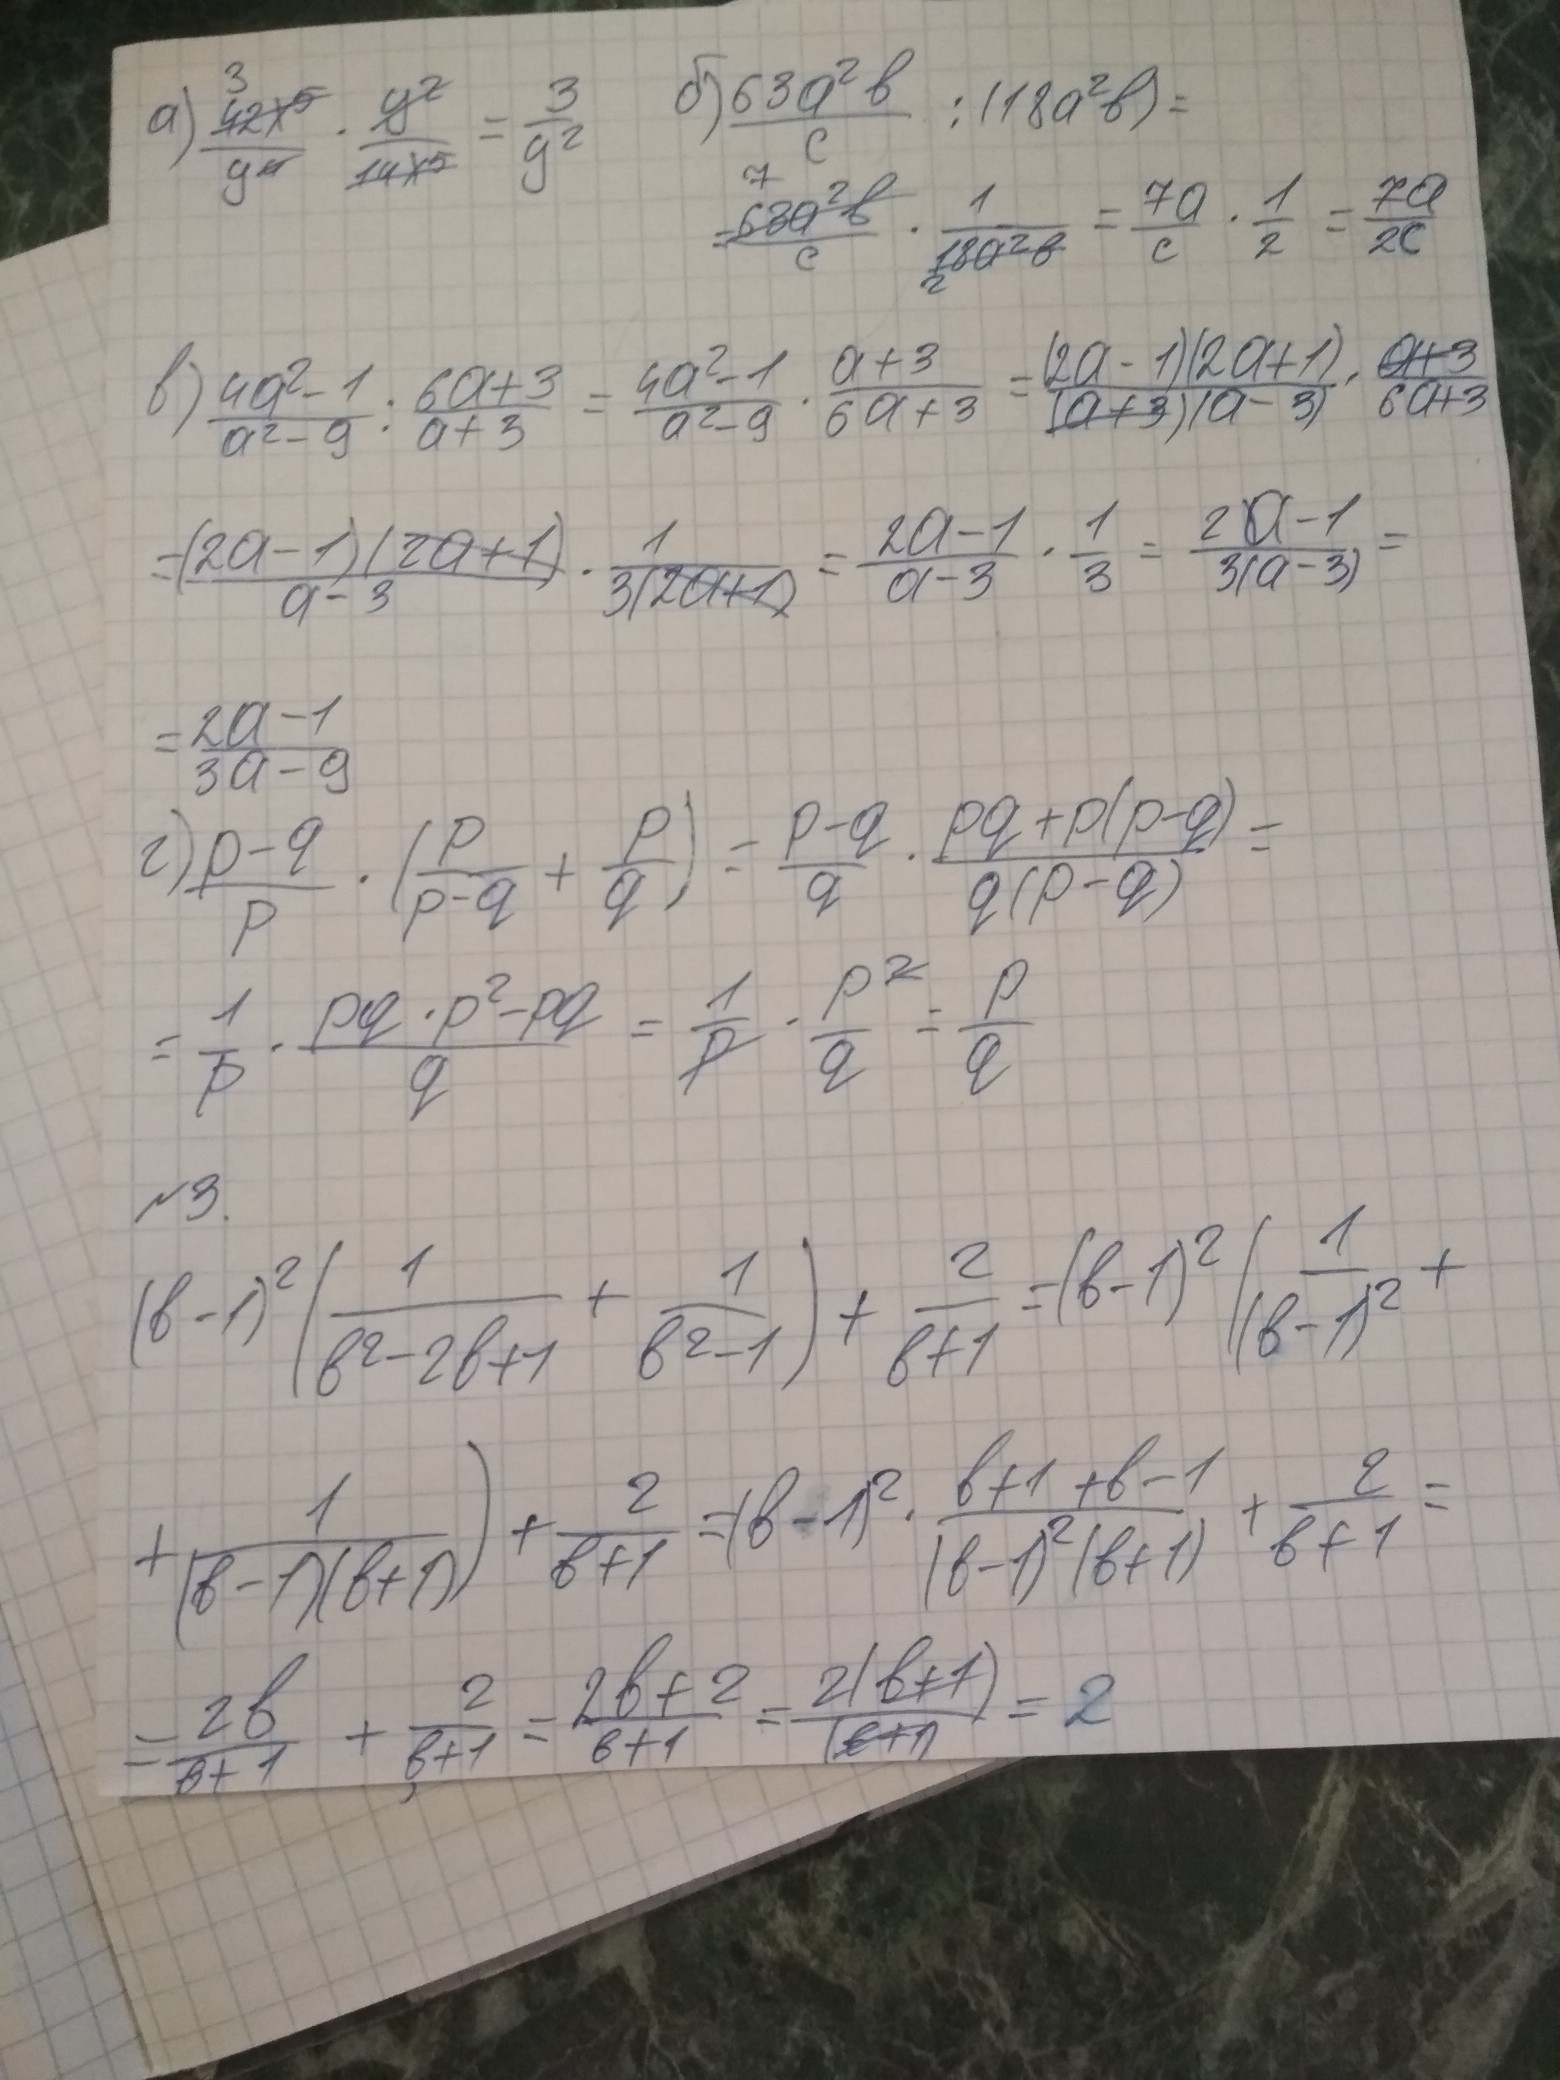 а) 42x⁵/y⁴ · y²/14x⁵ = 3/y² б) 63a²b/c : (18a²b) =
= 63a²b/c · 1/18a²b = 7a/c · 1/2 = 7a/2c
в) 4a²-1/a²-9 : 6a+3/a+3 = 4a²-1/a²-9 · a+3/6a+3 = (2a-1)(2a+1)/(a+3)(a-3) · a+3/6a+3
= (2a-1)(2a+1)/a-3 · 1/3(2a+1) = 2a-1/a-3 · 1/3 = 2a-1/3(a-3) =
= 2a-1/3a-9
г) p-q/p · (p/p-q + p/q) = p-q/q · pq+p(p-q)/q(p-q) =
= 1/p · pq·p²-pq/q = 1/p · p²/q = p/q
№3.
(b-1)²(1/b²-2b+1 + 1/b²-1) + 2/b+1 = (b-1)²(1/(b-1)² +
+ 1/(b-1)(b+1)) + 2/b+1 = (b-1)² · b+1+b-1/(b-1)²(b+1) + 2/b+1 =
= 2b/b+1 + 2/b+1 = 2b+2/b+1 = 2(b+1)/(b+1) = 2